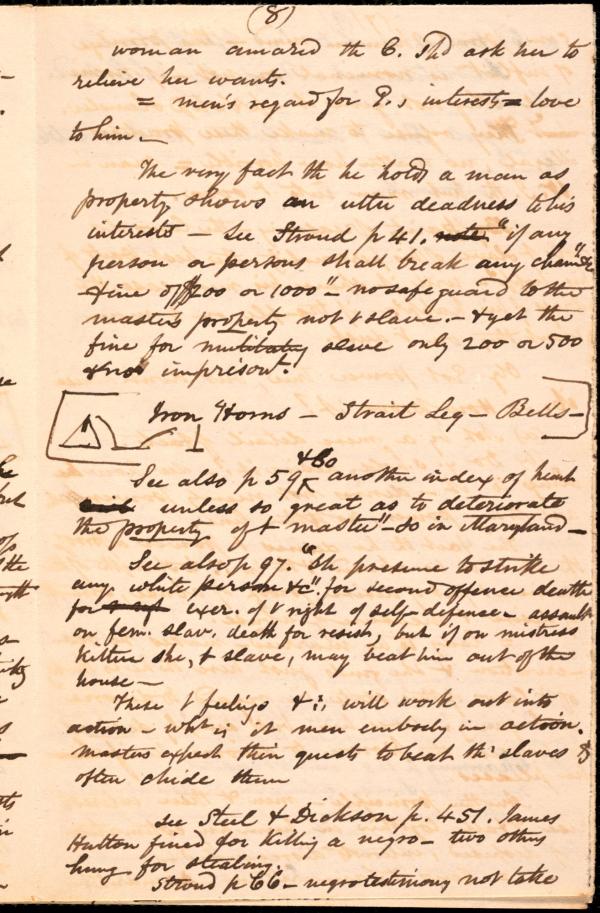 (8)
woman amazed th I. Shd ask her to
relieve her wants.
= men's regard for P.s interests = love
to him. —
The very fact th he holds a man as
property shows an utter deadness to his
interests — See Stroud p 41. "if any
person or persons shall break any chain &c"
fine of $200 or 1000" — no safeguard to the
master's property not t slave. — & yet the
fine for mutilating slave only 200 or 500
& no imprisont.
Iron Horns — Strait Leg — Bells —
See also p 59 & 60 another index of heart
unless so great as to deteriorate
the property of t master" — So in Maryland —
See also p 97. "Sh presume to strike
any white person &c". for second offence death
for exer. of t right of self-defence — assault
on fem. slav. death for resist, but if on mistress
kitten she, t slave, may beat him out of the
house —
These t feelings & is, will work out into
action — wht is it men embody in action.
Masters expect their guests to beat th' slaves &
often chide them
See Steel & Dickson p. 451. James
Hutton fined for killing a negro — two others
hung for stealing.
Stroud p 66 — negro testimony not take